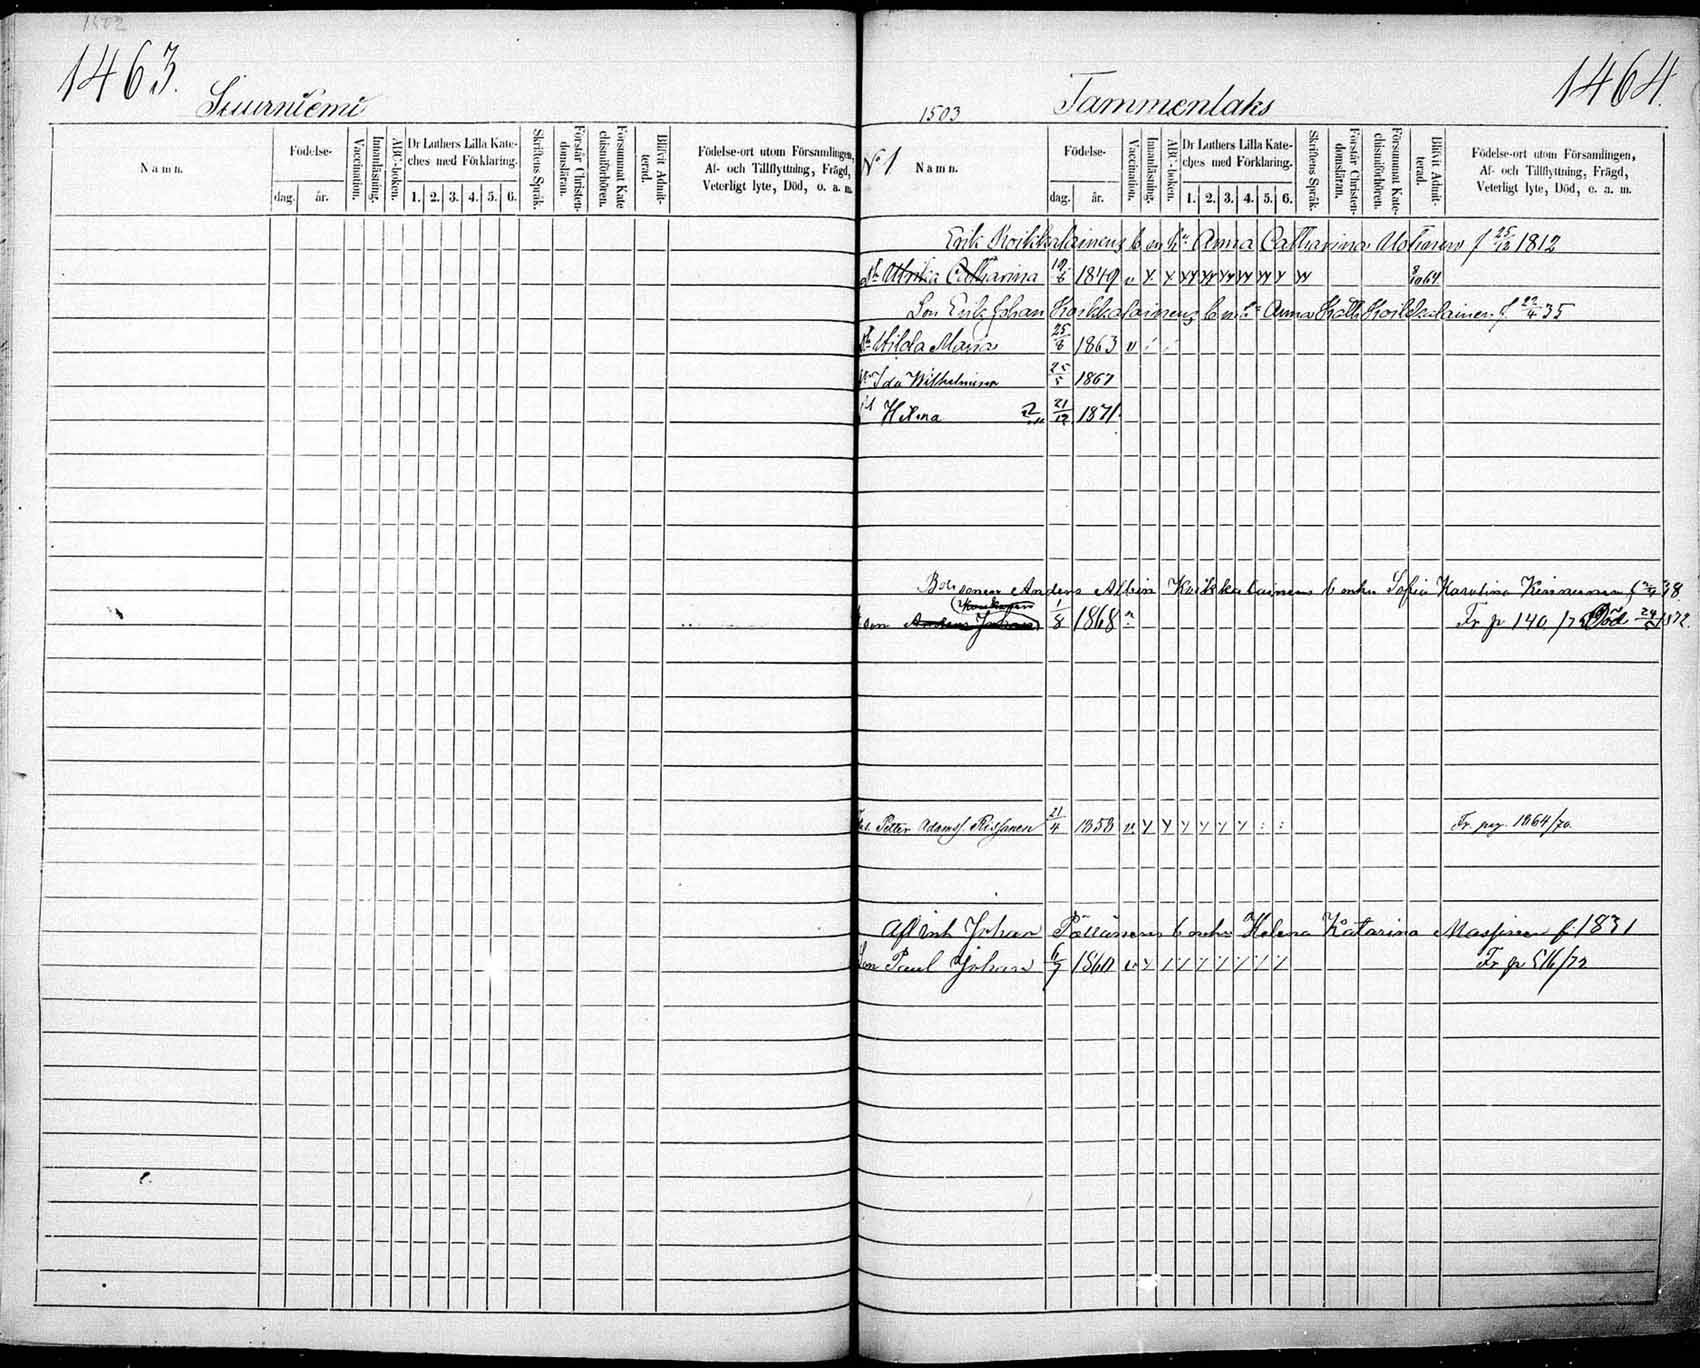 1502
1463.
Suurniemi
Namn.
Födelse-
dag.
år.
Vaccination.
Innanläsning.
ABC-boken.
Dr Luthers Lilla Kate-
ches med Förklaring.
1. 2. 3. 4. 5. 6.
Skriftens Språk.
Förstår Christen-
domsläran.
Försummat Kate
chismiförhören.
Blifvit Admit-
terad.
Födelse-ort utom Församlingen,
Af- och Tillflyttning, Frägd,
Veterligt lyte, Död, o. a. m.
1464.
1503
Tammenlaks
No 1
Namn.
Födelse-
dag.
år.
Vaccination.
Innanläsning.
ABC-boken.
Dr Luthers Lilla Kate-
ches med Förklaring.
1. 2. 3. 4. 5. 6.
Skriftens Språk.
Förstår Christen-
domsläran.
Försummat Kate-
chismiförhören.
Blifvit Admit-
terad.
Födelse-ort utom Församlingen,
Af- och Tillflyttning, Frägd,
Veterligt lyte, Död, o. a. m.
Erik Koikkalainens Anna Catharina f 25/12 1812
Ulrika Catharina 19/6 1849 64
Son Erik Johan Koikkalainens Anna Kath Koikkalainen f 22/4 35
Hilda Maria 25/8 1863
Ida Wilhelmina 25/5 1867
Helena 21/12 1871
Anders Albin Koikkalainens enka Sofia Karolina Kinnunen f 38
Son Anders Johan 1/8 1868 Fr p 140/72 Död 24/5 1872.
Petter Adamsf. Rissanen 21/4 1858 Fr. pag. 1364/70.
Afl Inh Johan Pöllänens enka Helena Katarina Massinen f. 1831
Son Paul Johan 6/7 1860 Fr p 516/72